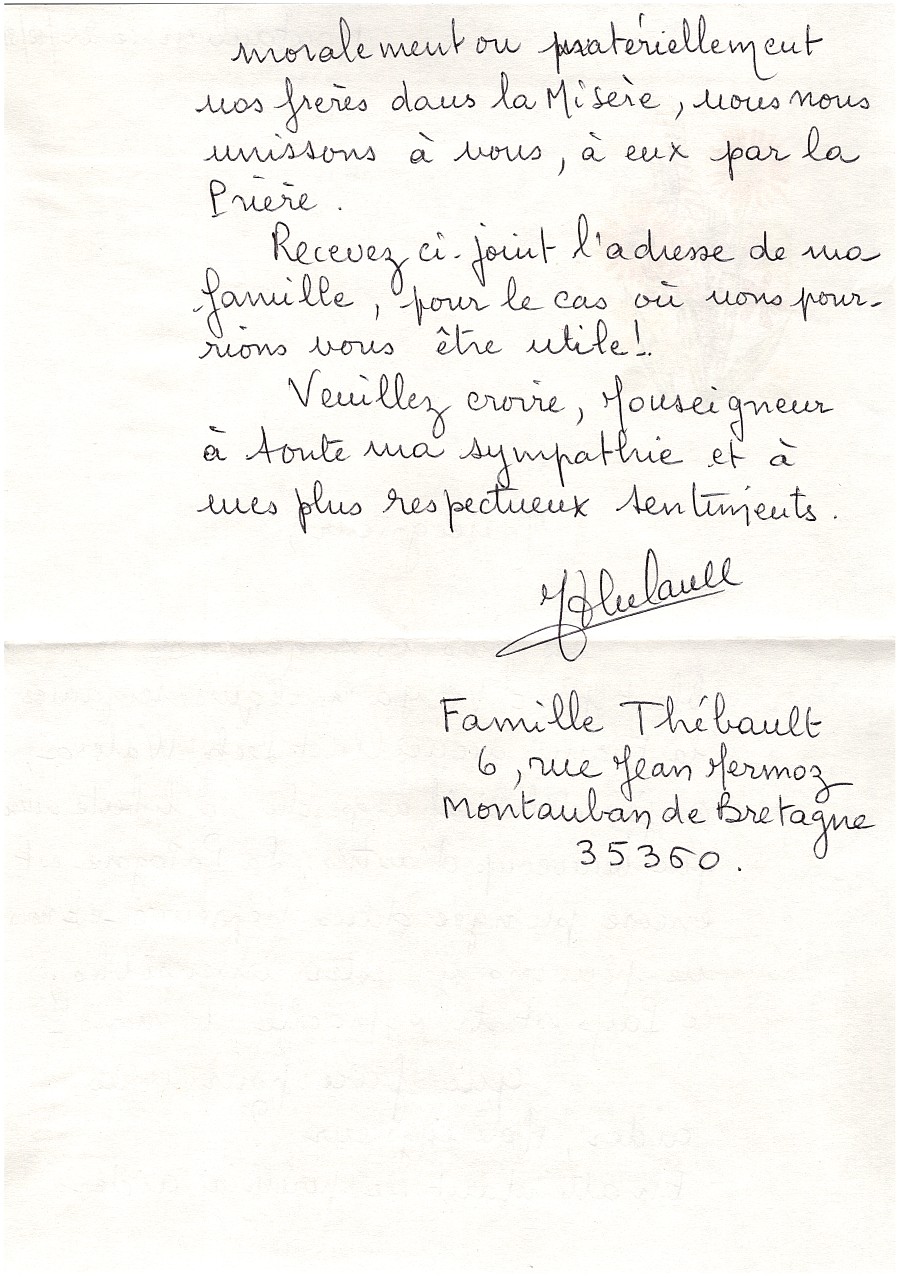 moralement ou matériellement
nos frères dans la Misère, nous nous
unissons à vous, à eux par la
Prière.
Recevez ci-joint l'adresse de ma
famille, pour le cas où nous pour-
rions vous être utile!.
Veuillez croire, Monseigneur
à toute ma sympathie et à
mes plus respectueux sentiments.
Famille Thébault
6, rue Jean Mermoz
Montauban de Bretagne
35360.